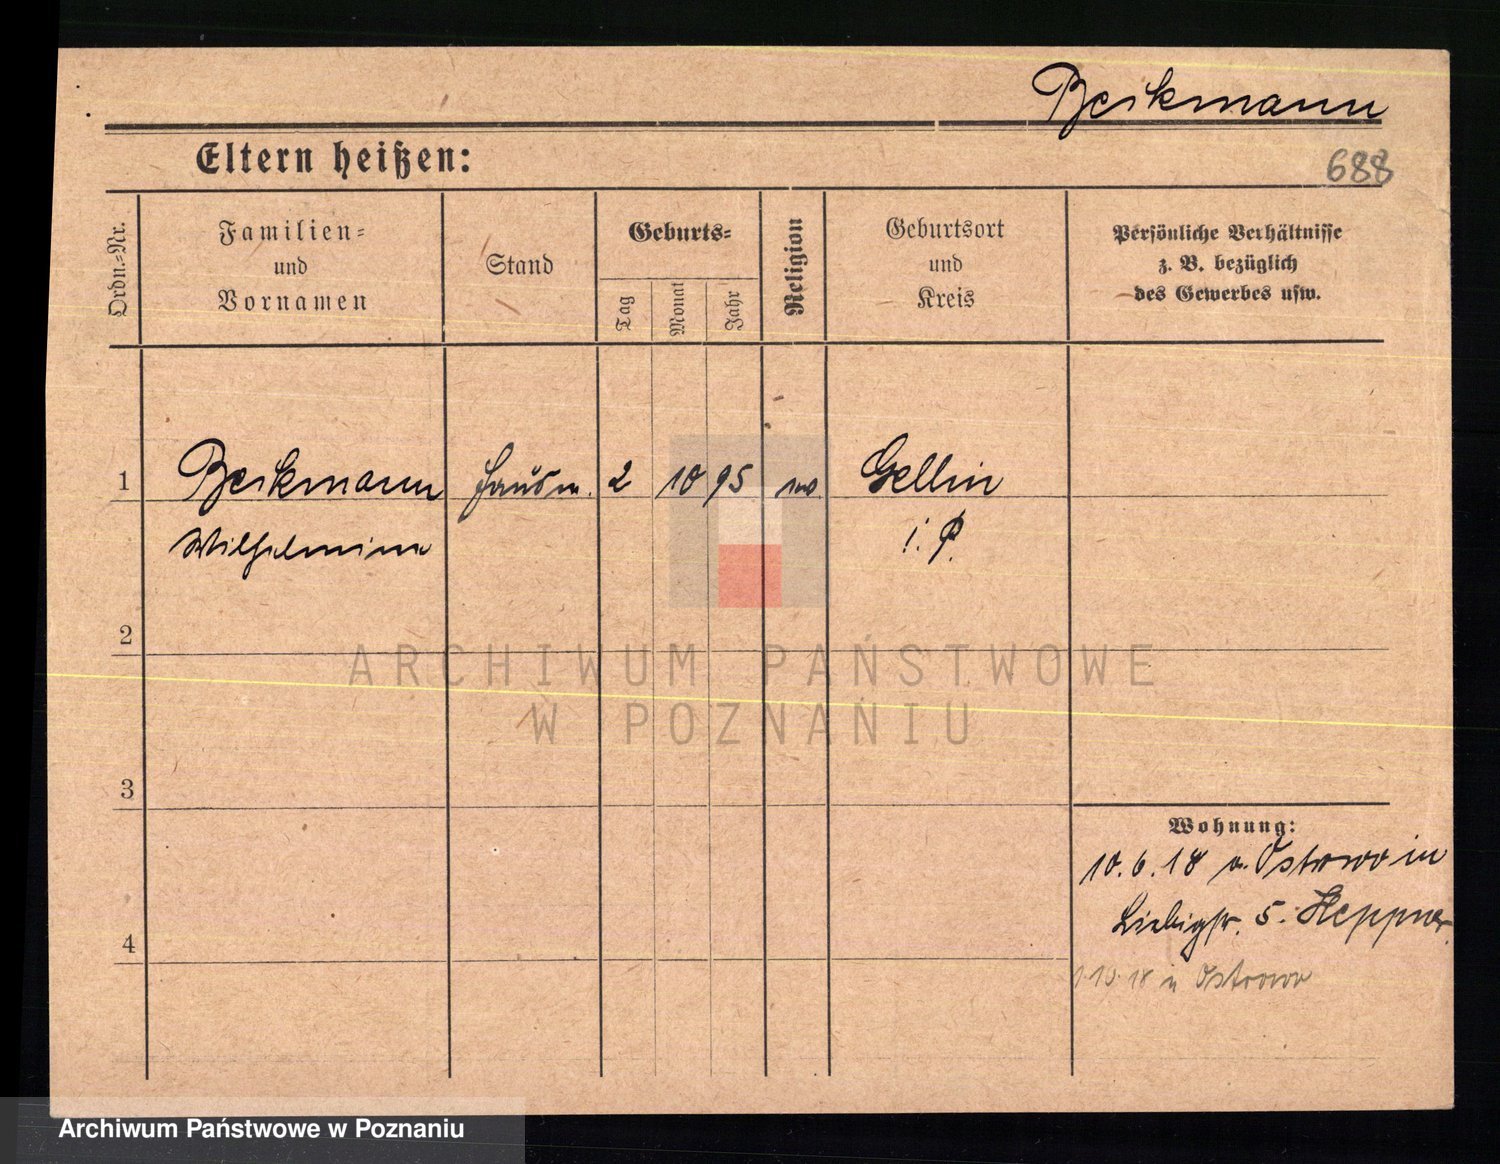 Beikmann
Eltern heißen:
688
Ordn.=Nr.
Familien=
und
Vornamen
Stand
Geburts=
Tag
Monat
Jahr
Religion
Geburtsort
und
Kreis
Persönliche Verhältnisse
z. B. bezüglich
des Gewerbes usw.
1
Beikmann
Wilhelmine
Hausm.
2
10
95
Gellin
i. P.
2
ARCHIWUM PAŃSTWOWE
W POZNANIU
3
Wohnung:
10.6.18 v. Ostrowo in
Liebigstr. 5. Heppner.
4
1.10.18 n Ostrowo
Archiwum Państwowe w Poznaniu